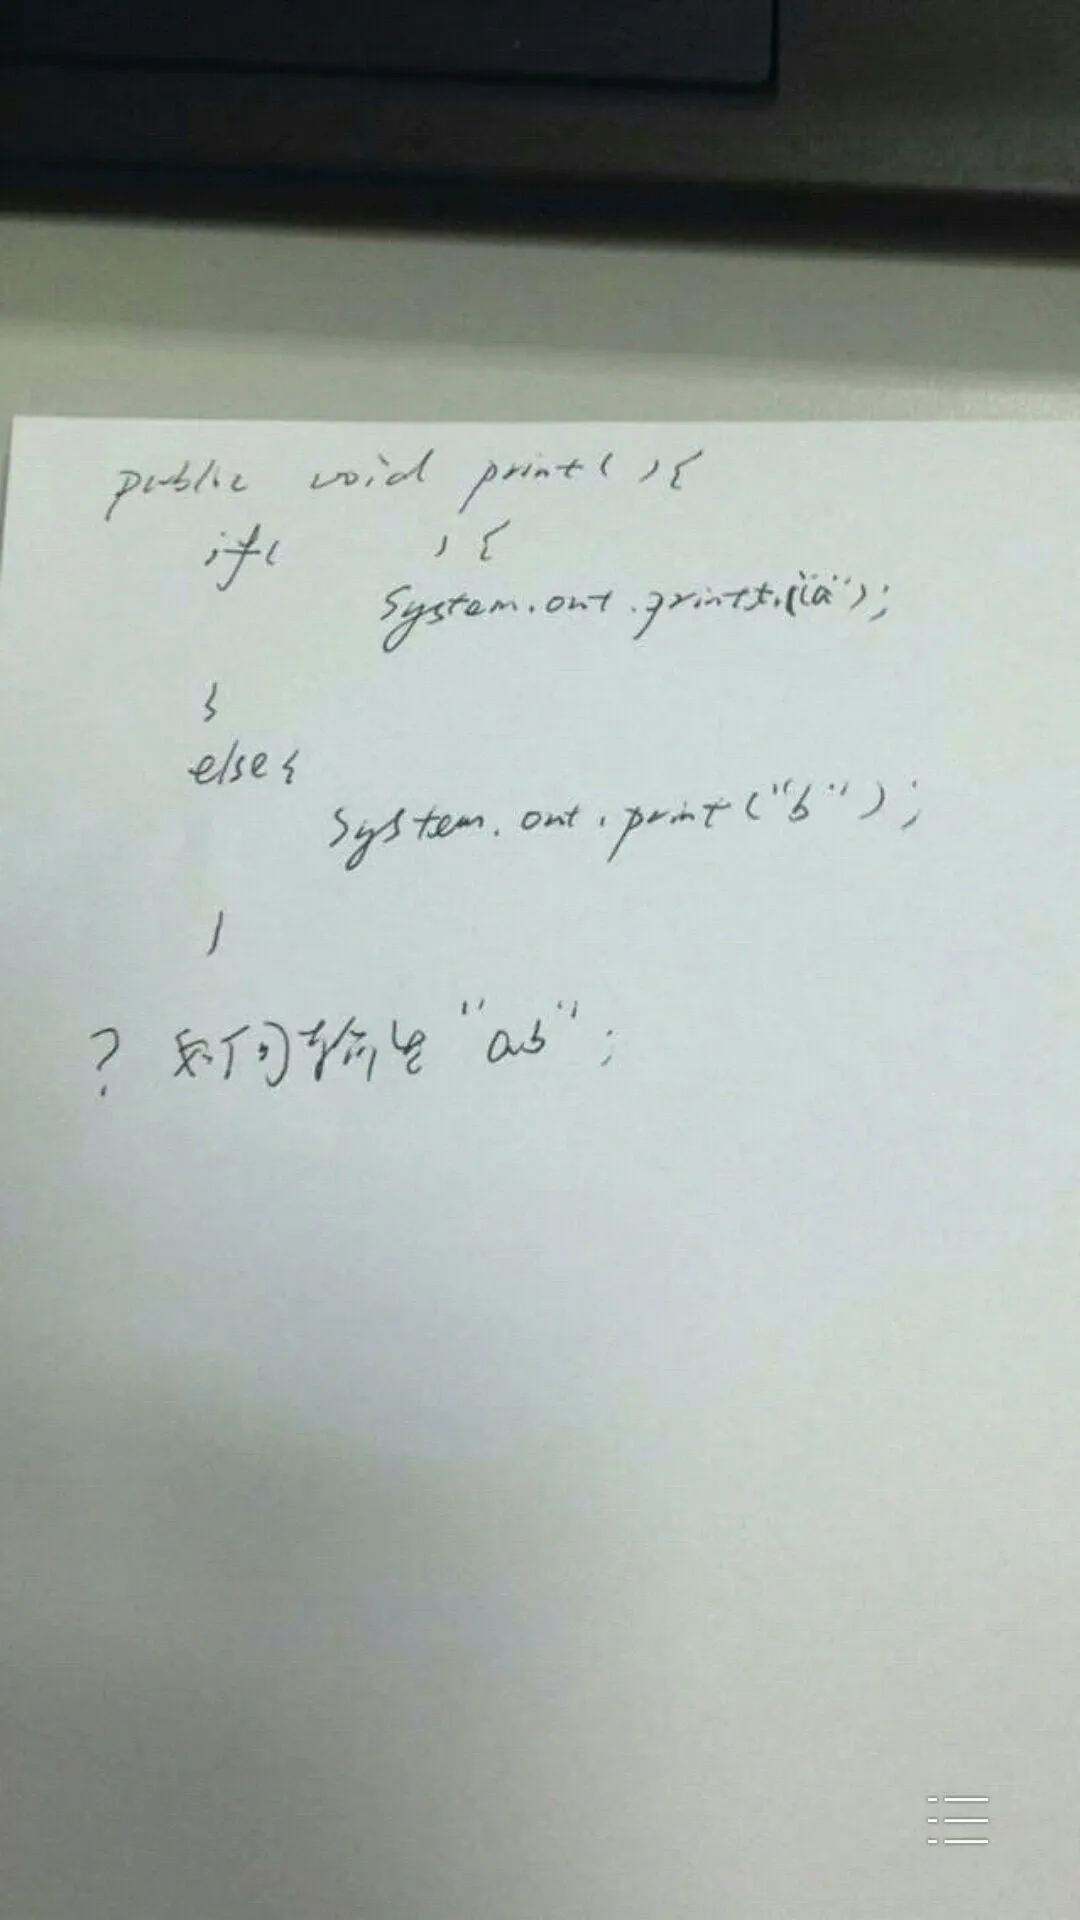 public void print( ){
if( ) {
System.out.print("a");
}
else{
System.out.print("b");
}
? 如何输出"ab";